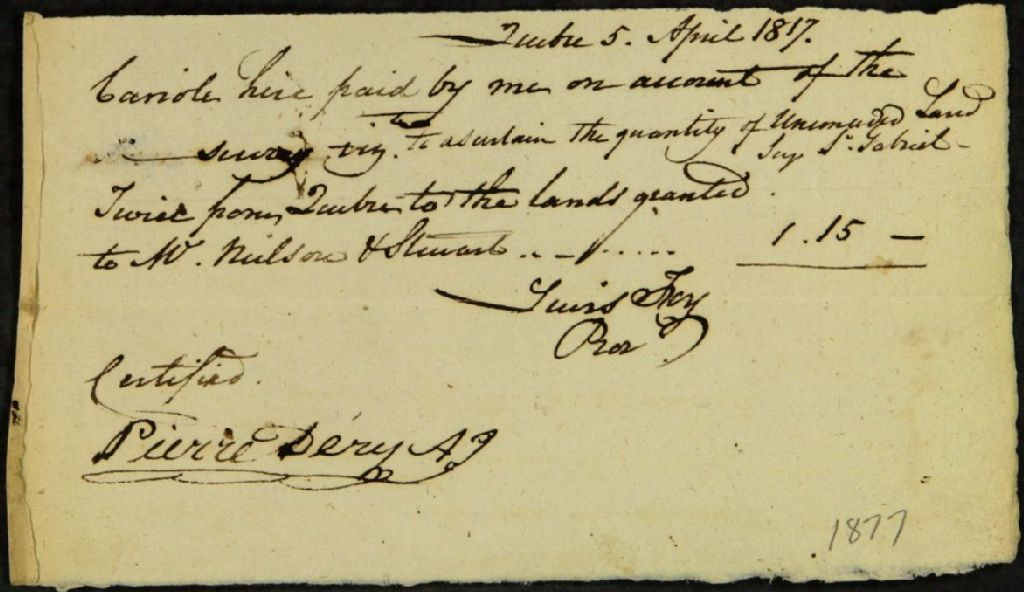 Quebec 5. April 1817.
Cariole hire paid by me on account of the
survey viz. to asertain the quantity of Unconceded Land
Seig St. Gabriel -
Twice from Quebec to the lands granted
to Mr. Neilson & Stewart .. - ..... 1.15 -
Louis Foy
Certified.
Pierre Déry
1877